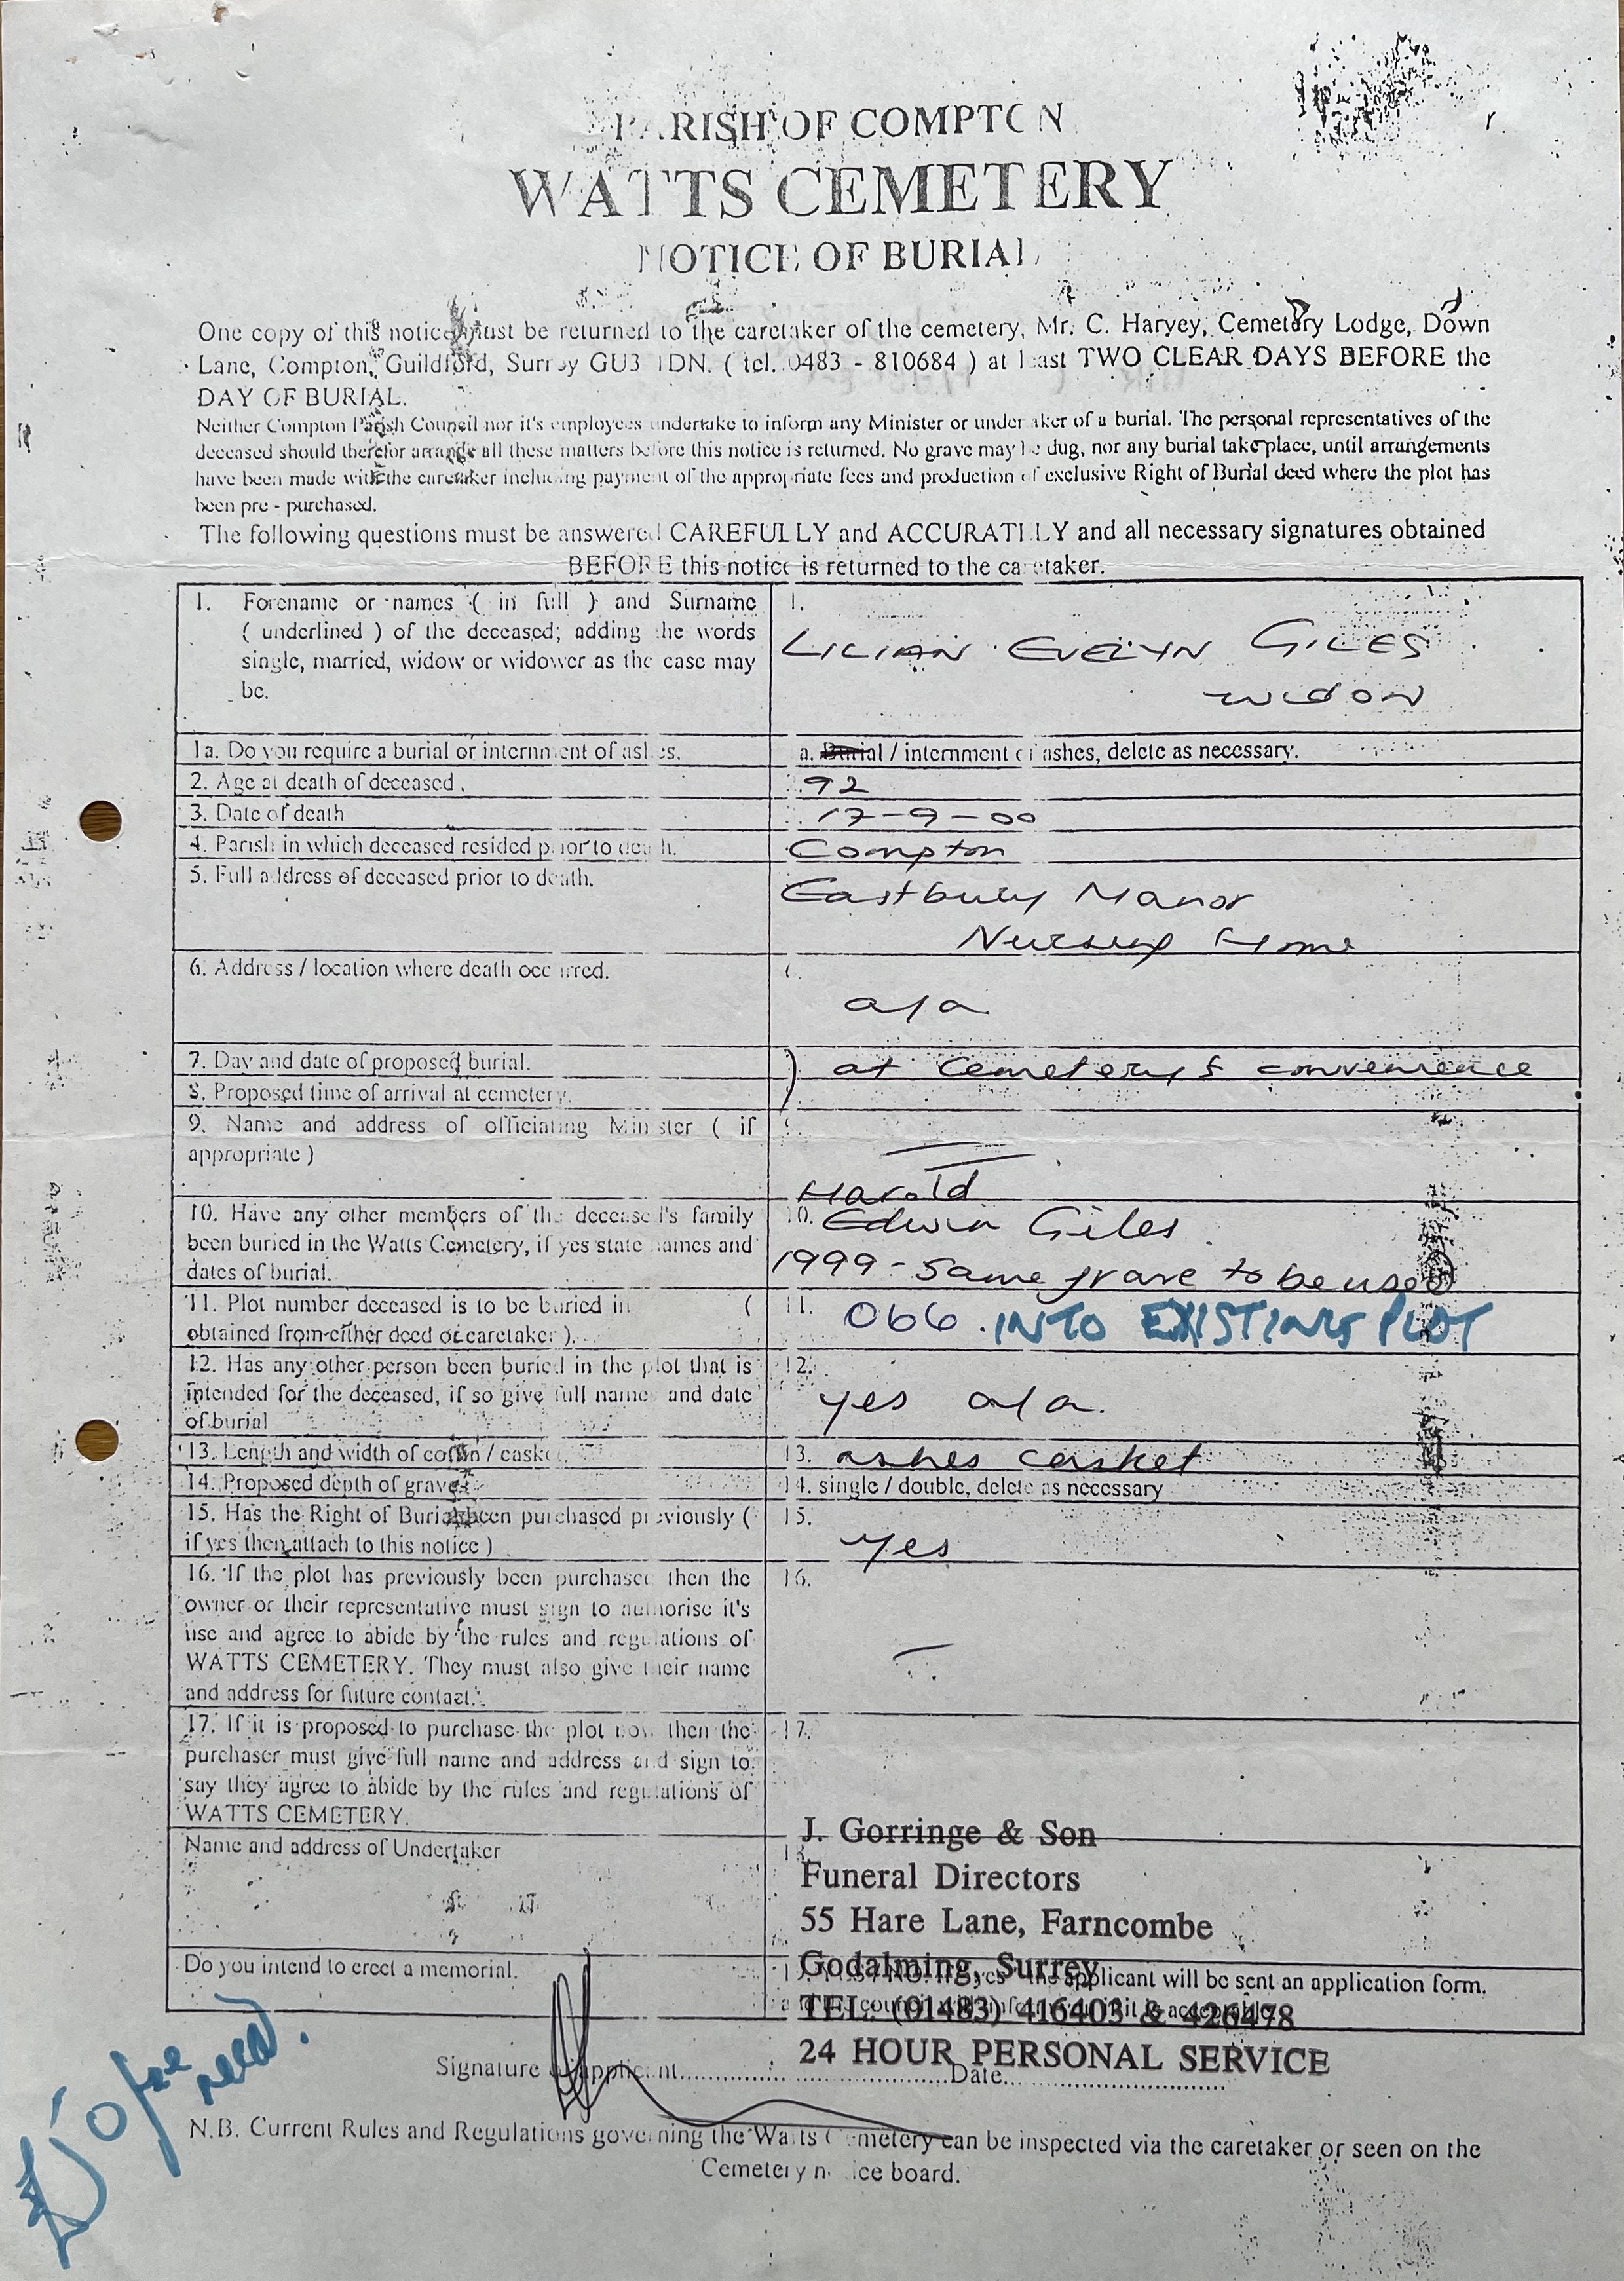 PARISH OF COMPTON
WATTS CEMETERY
NOTICE OF BURIAL
One copy of this notice must be returned to the caretaker of the cemetery, Mr. C. Harvey, Cemetery Lodge, Down
Lane, Compton, Guildford, Surrey GU3 1DN. ( tel. 0483 - 810684 ) at least TWO CLEAR DAYS BEFORE the
DAY OF BURIAL.
Neither Compton Parish Council nor it's employees undertake to inform any Minister or undertaker of a burial. The personal representatives of the
deceased should therefor arrange all these matters before this notice is returned. No grave may be dug, nor any burial take place, until arrangements
have been made with the caretaker including payment of the appropriate fees and production of exclusive Right of Burial deed where the plot has
been pre - purchased.
The following questions must be answered CAREFULLY and ACCURATELY and all necessary signatures obtained
BEFORE this notice is returned to the caretaker.
1. Forename or names ( in full ) and Surname
( underlined ) of the deceased; adding the words
single, married, widow or widower as the case may
be.
1.
LILIAN EVELYN GILES
WIDOW
1a. Do you require a burial or internment of ashes.
a. Burial / internment of ashes, delete as necessary.
2. Age at death of deceased.
92
3. Date of death
17-9-00
4. Parish in which deceased resided prior to death.
Compton
5. Full address of deceased prior to death.
Eastbury Manor
Nursing Home
6. Address / location where death occurred.
6.
a/a
7. Day and date of proposed burial.
) at Cemetery's convenience
8. Proposed time of arrival at cemetery.
9. Name and address of officiating Minister ( if
appropriate )
9.
10. Have any other members of the deceased's family
been buried in the Watts Cemetery, if yes state names and
dates of burial.
Harold
10. Edwin Giles
1999 - Same grave to be used
11. Plot number deceased is to be buried in (
obtained from either deed or caretaker ).
11. 066. INTO EXISTING PLOT
12. Has any other person been buried in the plot that is
intended for the deceased, if so give full name and date
of burial
12.
yes a/a.
13. Length and width of coffin / casket.
13. ashes casket
14. Proposed depth of grave
14. single / double, delete as necessary
15. Has the Right of Burial been purchased previously (
if yes then attach to this notice )
15.
yes
16. If the plot has previously been purchased then the
owner or their representative must sign to authorise it's
use and agree to abide by the rules and regulations of
WATTS CEMETERY. They must also give their name
and address for future contact.
16.
17. If it is proposed to purchase the plot now then the
purchaser must give full name and address and sign to
say they agree to abide by the rules and regulations of
WATTS CEMETERY.
17.
Name and address of Undertaker
18.
J. Gorringe & Son
Funeral Directors
55 Hare Lane, Farncombe
Godalming, Surrey
TEL: (01483) 416403 & 426478
24 HOUR PERSONAL SERVICE
Do you intend to erect a memorial.
the applicant will be sent an application form.
Signature of applicant.....................Date.....................
N.B. Current Rules and Regulations governing the Watts Cemetery can be inspected via the caretaker or seen on the
Cemetery notice board.